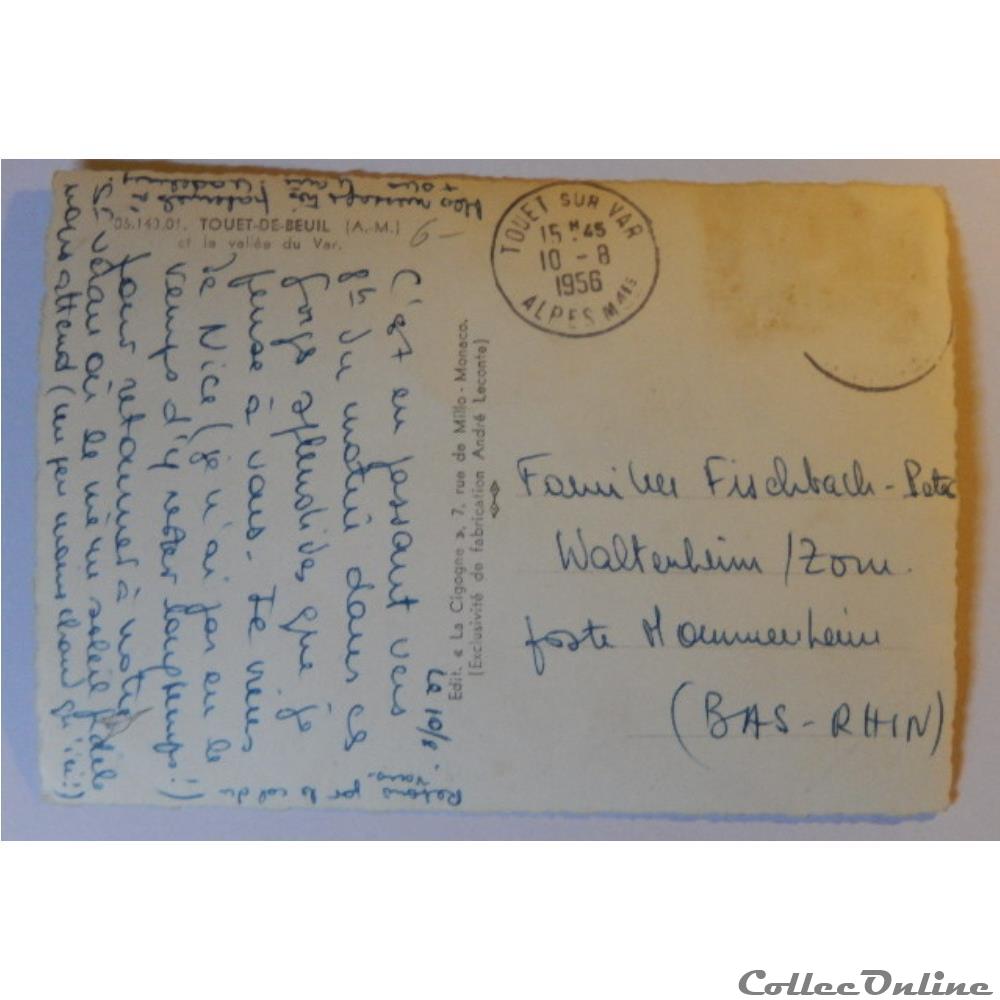 06.140.01. TOUET-DE-BEUIL (A.-M.)
et la vallée du Var.
TOUET SUR VAR
15 H 45
10 - 8
1956
ALPES MMES
Le 10/8.
C'est en passant vers
8h du matin dans ces
gorges splendides que je
pense à vous. Je viens
de Nice (je n'ai pas eu le
temps d'y rester longtemps!)
pour retourner à notre
où le même soleil fidèle
nous attend (un peu moins chaud qu'ici!)
Edit. « La Cigogne », 7, rue de Millo - Monaco.
(Exclusivité de fabrication André Leconte)
Familles Fischbach-Peter
Waltenheim /Zorn.
poste Mommenheim
(BAS-RHIN)
CollecOnline